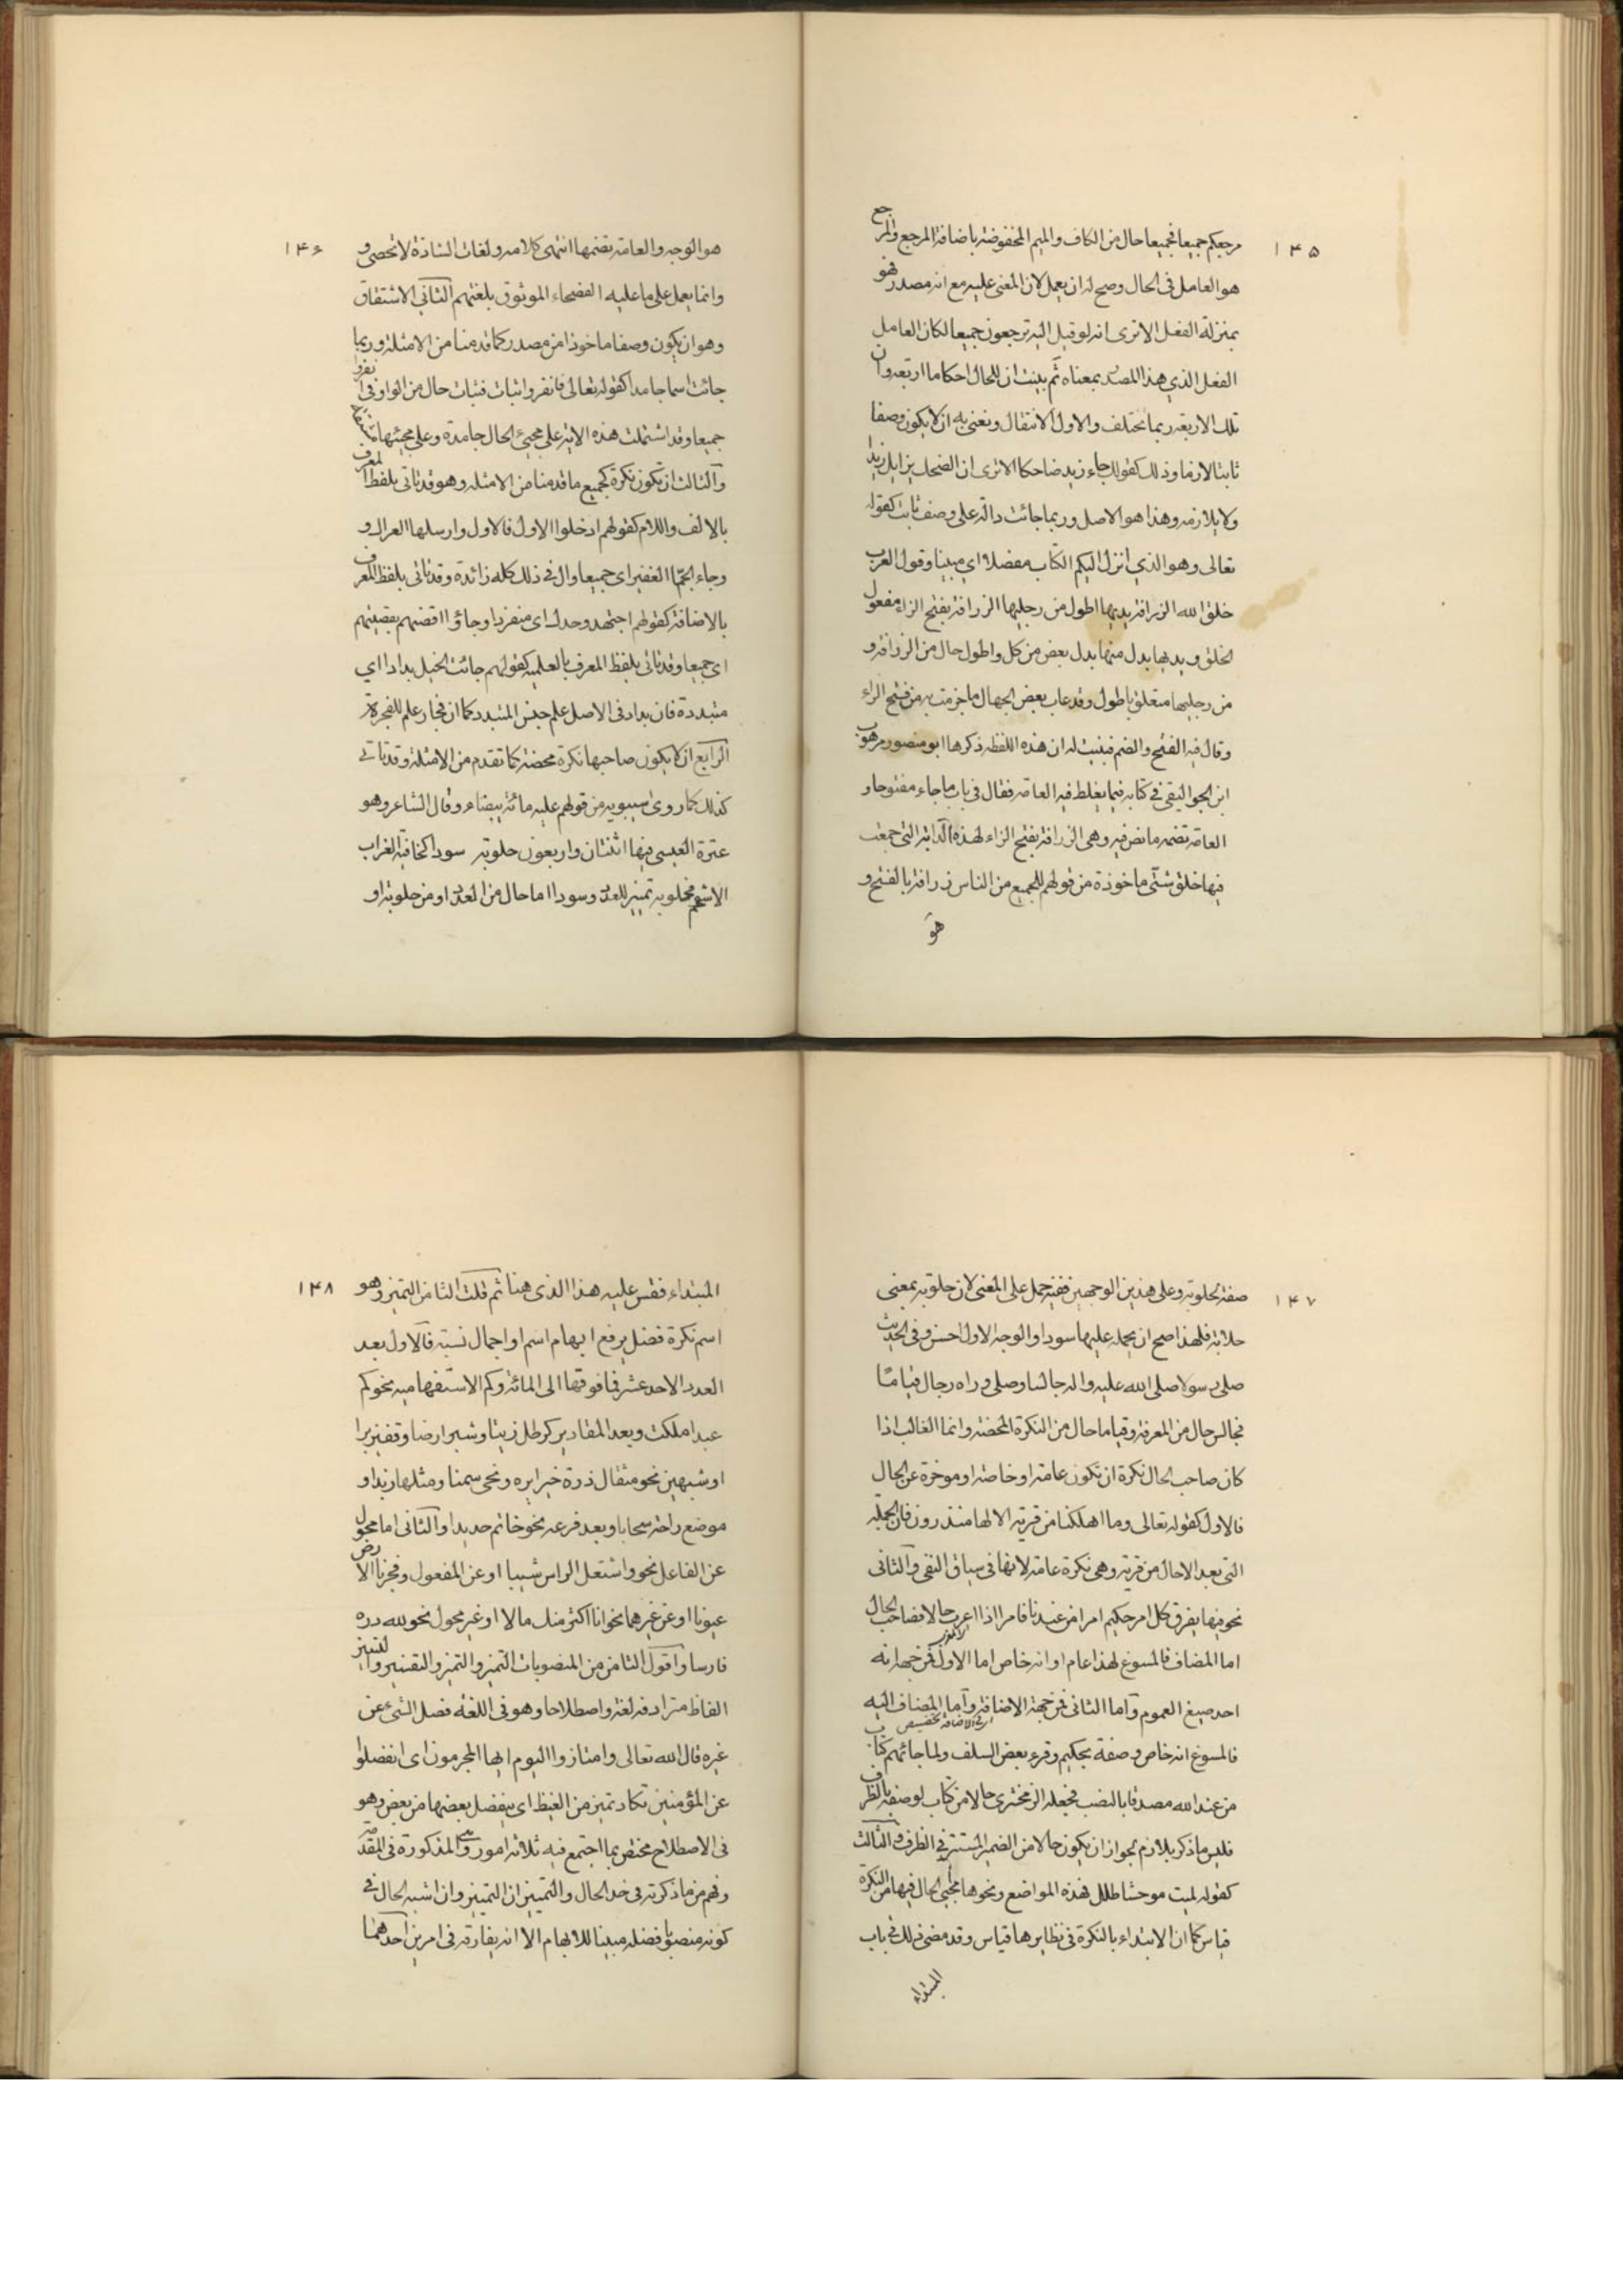 ۱۴۵
مرجعكم جميعا فجميعا حال من الكاف والميم المخفوضة باضافة المرجع والمرجع
هو العامل فى الحال وصح له ان يعمل لان المعنى عليه مع انه مصدر فهو
بمنزلة الفعل الا ترى انه لو قيل اليه ترجعون جميعا لكان العامل
الفعل الذي هذا المصدر بمعناه ثم بينت ان للحال احكاما اربعه وان
تلك الاربعه ربما تختلف والاول الانتقال ونعنى به ان لا يكون وصفا
ثابتا لازما وذلك كقولك جاء زيد ضاحكا الا ترى ان الضحك يزايل زيدا
ولا يلازمه وهذا هو الاصل وربما جائت دالة على وصف ثابت كقوله
تعالى وهو الذي انزل اليكم الكتاب مفصلا اي مبينا وقول العرب
خلق الله الزرافة يديها اطول من رجليها الزرافة بفتح الزاء مفعول
لخلق ويديها بدل منها بدل بعض من كل واطول حال من الزرافة و
من رجليها متعلق باطول وقد عاب بعض الجهال ما جزمت به من فتح الزاء
وقال فيه الفتح والضم فبينت له ان هذه اللفظه ذكرها ابو منصور موهوب
ابن الجواليقى فى كتابه فيما يغلط فيه العامه فقال فى باب ما جاء مفتوحا و
العامة تضمه ما نص فيه وهى الزرافة بفتح الزاء لهذه الدابة التى جمعت
فيها خلق شتى ماخوذة من قولهم للجميع من الناس زرافة بالفتح و
هو
۱۴۶
هو الوجه والعامة تضمها انتهى كلامه ولغات الشاذة لا تحصى و
وانما يعمل على ما عليه الفصحاء الموثوق بلغتهم الثانى الاشتقاق
وهو ان يكون وصفا ماخوذا من مصدر كما قدمنا من الامثلة وربما
جائت اسما جامدا كقوله تعالى فانفروا ثبات فثبات حال من الواو فى انفروا
جميعا وقد اشتملت هذه الاية على مجيئ الحال جامدة وعلى مجيئها مشتقة
والثالث ان تكون نكرة كجميع ما قدمنا من الامثله وهو قد تاتى بلفظ المعرف
بالالف واللام كقولهم ادخلوا الاول فالاول وارسلها العراك و
وجاء الجمّا الغفير اى جميعا وال فى ذلك كله زائدة وقد تاتى بلفظ المعرف
بالاضافة كقولهم اجتهد وحدك اى منفردا وجاؤا قضهم بقضيضهم
اى جميعا وقد تاتى بلفظ المعرف بالعلميه كقولهم جائت الخيل بداد اي
متبددة فان بداد فى الاصل علم جنس المتبدد كما ان فجار علم للفجرة
الرابع ان لا يكون صاحبها نكرة محضة كما تقدم من الامثلة وقد تاتى
كذلك كما روى سيبويه من قولهم عليه مائة بيضاء وقال الشاعر وهو
عنترة العبسى فيها اثنتان واربعون حلوبة سودا كخافية الغراب
الاسحم فحلوبه تمييز للعدد وسودا اما حال من العدد او من حلوبة او
۱۴۷
صفة لحلوبة وعلى هذين الوجهين ففيه حمل على المعنى لان حلوبة بمعنى
حلائب فلهذا صح ان يحمل عليها سودا والوجه الاول احسن وفى الحديث
صلى رسولا صلى الله عليه واله جالسا وصلى وراه رجال قيامًا
فجالس حال من المعرفة وقياما حال من النكرة المحضة وانما الغالب اذا
كان صاحب الحال نكرة ان تكون عامة او خاصة او موخرة عن الحال
فالاول كقوله تعالى وما اهلكنا من قرية الا لها منذرون فان الجملة
التى بعد الا حال من قرية وهى نكرة عامة لانها فى سياق النفى والثانى
نحو فيها يفرق كل امر حكيم امرا من عندنا فامرا اذا اعرب حالا فصاحب الحال
اما المضاف فالمسوغ لهذا عام او انه خاص اما الاول فمن جهة انه
احد صيغ العموم واما الثانى فمن جهة الاضافة واما المضاف اليه
فالمسوغ انه خاص وصفة بحكيم وقرء بعض السلف ولما جائهم كتاب
من عند الله مصدقا بالنصب فجعله الزمخشرى حالا من كتاب لوصفه بالظرف
فليس ما ذكر بلازم لجواز ان يكون حالا من الضمير المستتر فى الظرف والثالث
كقوله لمية موحشا طلل فهذه المواضع ونحوها مجيئ الحال فيها من النكرة
قياس كما ان الابتداء بالنكرة فى نظايرها قياس وقد مضى ذلك فى باب
المبتداء
۱۴۸
المبتداء فقس عليه هذا الذى هنا ثم قلت الثامن التميز وهو
اسم نكرة فضل يرفع ابهام اسم او اجمال نسبة فالاول بعد
العدد الاحد عشر فما فوقها الى المائة وكم الاستفهاميه نحو كم
عبدا ملكت وبعد المقادير كرطل زيتا وشبر ارضا وقفيز برا
او شبههن نحو مثقال ذرة خيرا يره ونحى سمنا ومثلها زبدا و
موضع راحة سحابا وبعد فرعه نحو خاتم حديدا والثانى اما محول
عن الفاعل نحو واشتعل الراس شيبا او عن المفعول وفجرنا الارض
عيونا او عن غيرهما نحو انا اكثر منك مالا او غير محول نحو لله دره
فارسا واقول الثامن من المنصوبات التميز والتميز والتفسير والتبيين
الفاظ مترادفه لغة واصطلاحا وهو فى اللغة فصل الشئ عن
غيره قال الله تعالى وامتازوا اليوم ايها المجرمون اى انفصلوا
عن المؤمنين تكاد تميز من الغيظ اى ينفصل بعضها من بعض وهو
فى الاصطلاح مختص بما اجتمع فيه ثلاثة امور وهى المذكورة فى المقدمة
وفهم من ما ذكرته فى حد الحال والتمييز ان التمييز وان اشبه الحال فى
كونه منصوبا فضله مبينا للابهام الا انه يفارقه فى امرين احدهما